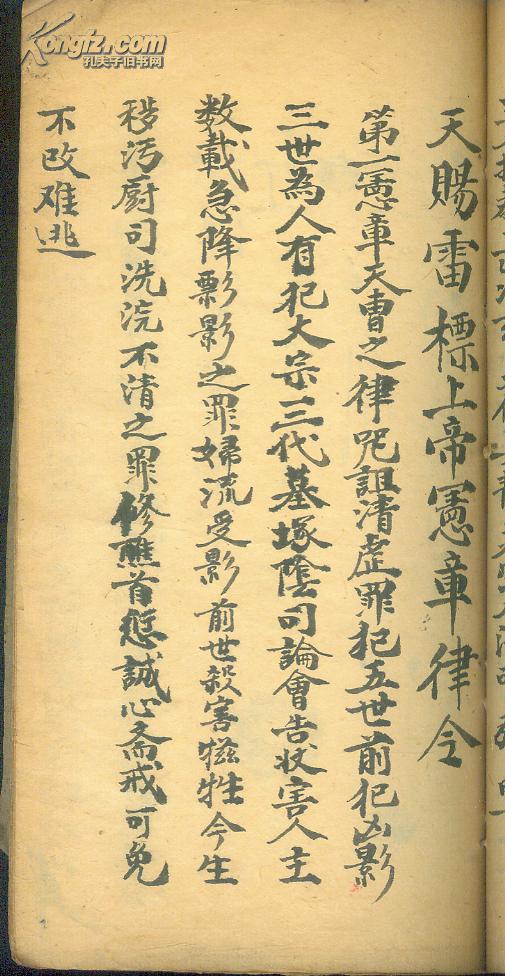 Kongfz.com
孔夫子旧书网
天賜雷標上帝憲章律令
第一憲章天曹之律咒詛清虛罪犯五世前犯凶影
三世為人有犯大宗三代墓塚陰司論會告狀害人主
数載急降影之罪婦流受影前世殺害牲今生
秽污厨司洗浣不清之罪修醮首愆誠心斋戒可免
不改难逃